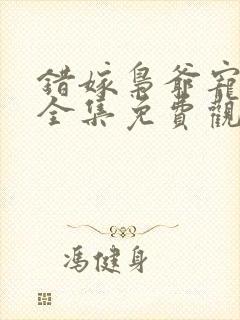 錯嫁梟爺寵
全集免費觀
馮健身